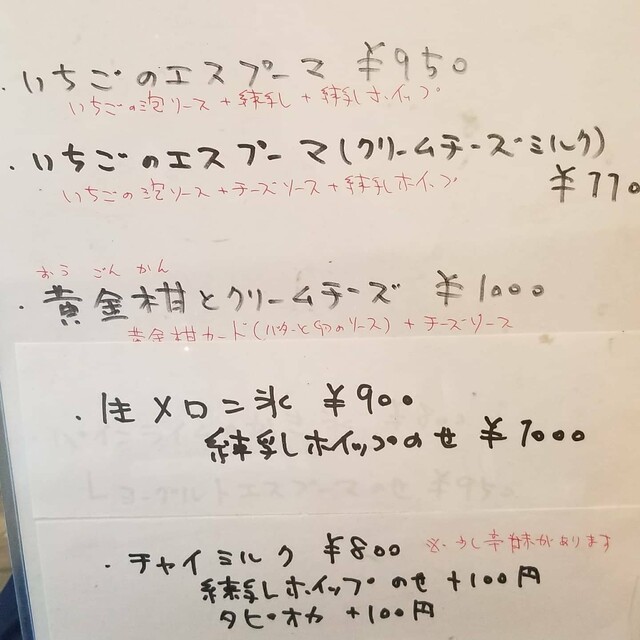 ・いちごのエスプーマ ¥950
いちごの泡ソース+練乳+練乳ホイップ
・いちごのエスプーマ(クリームチーズミルク)
いちごの泡ソース+チーズソース+練乳ホイップ
¥110
おうごんかん
・黄金柑とクリームチーズ ¥1000
黄金柑カード(バターと卵のソース)+チーズソース
・生メロン氷 ¥900
練乳ホイップのせ ¥1000
・チャイミルク ¥800 ※少し辛味があります
練乳ホイップのせ +100円
タピオカ +100円